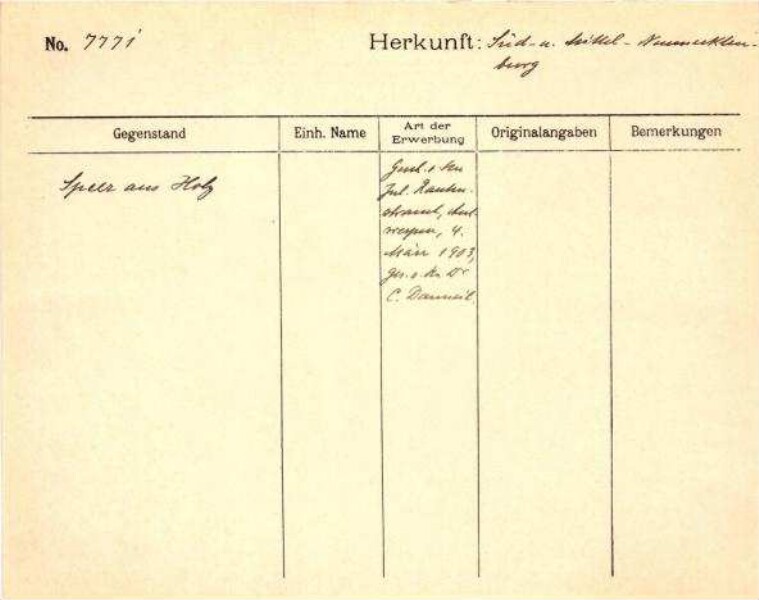 No. 7771 Herkunft: Süd- u. Mittel- Neumecklen-
burg
Gegenstand Einh. Name Art der Erwerbung Originalangaben Bemerkungen
Speer aus Holz
Gesch. v. Hn
Jul. Rauten-
strauch, Ant-
werpen, 4.
März 1903,
ges. v. Hn Dr
C. Danneil.